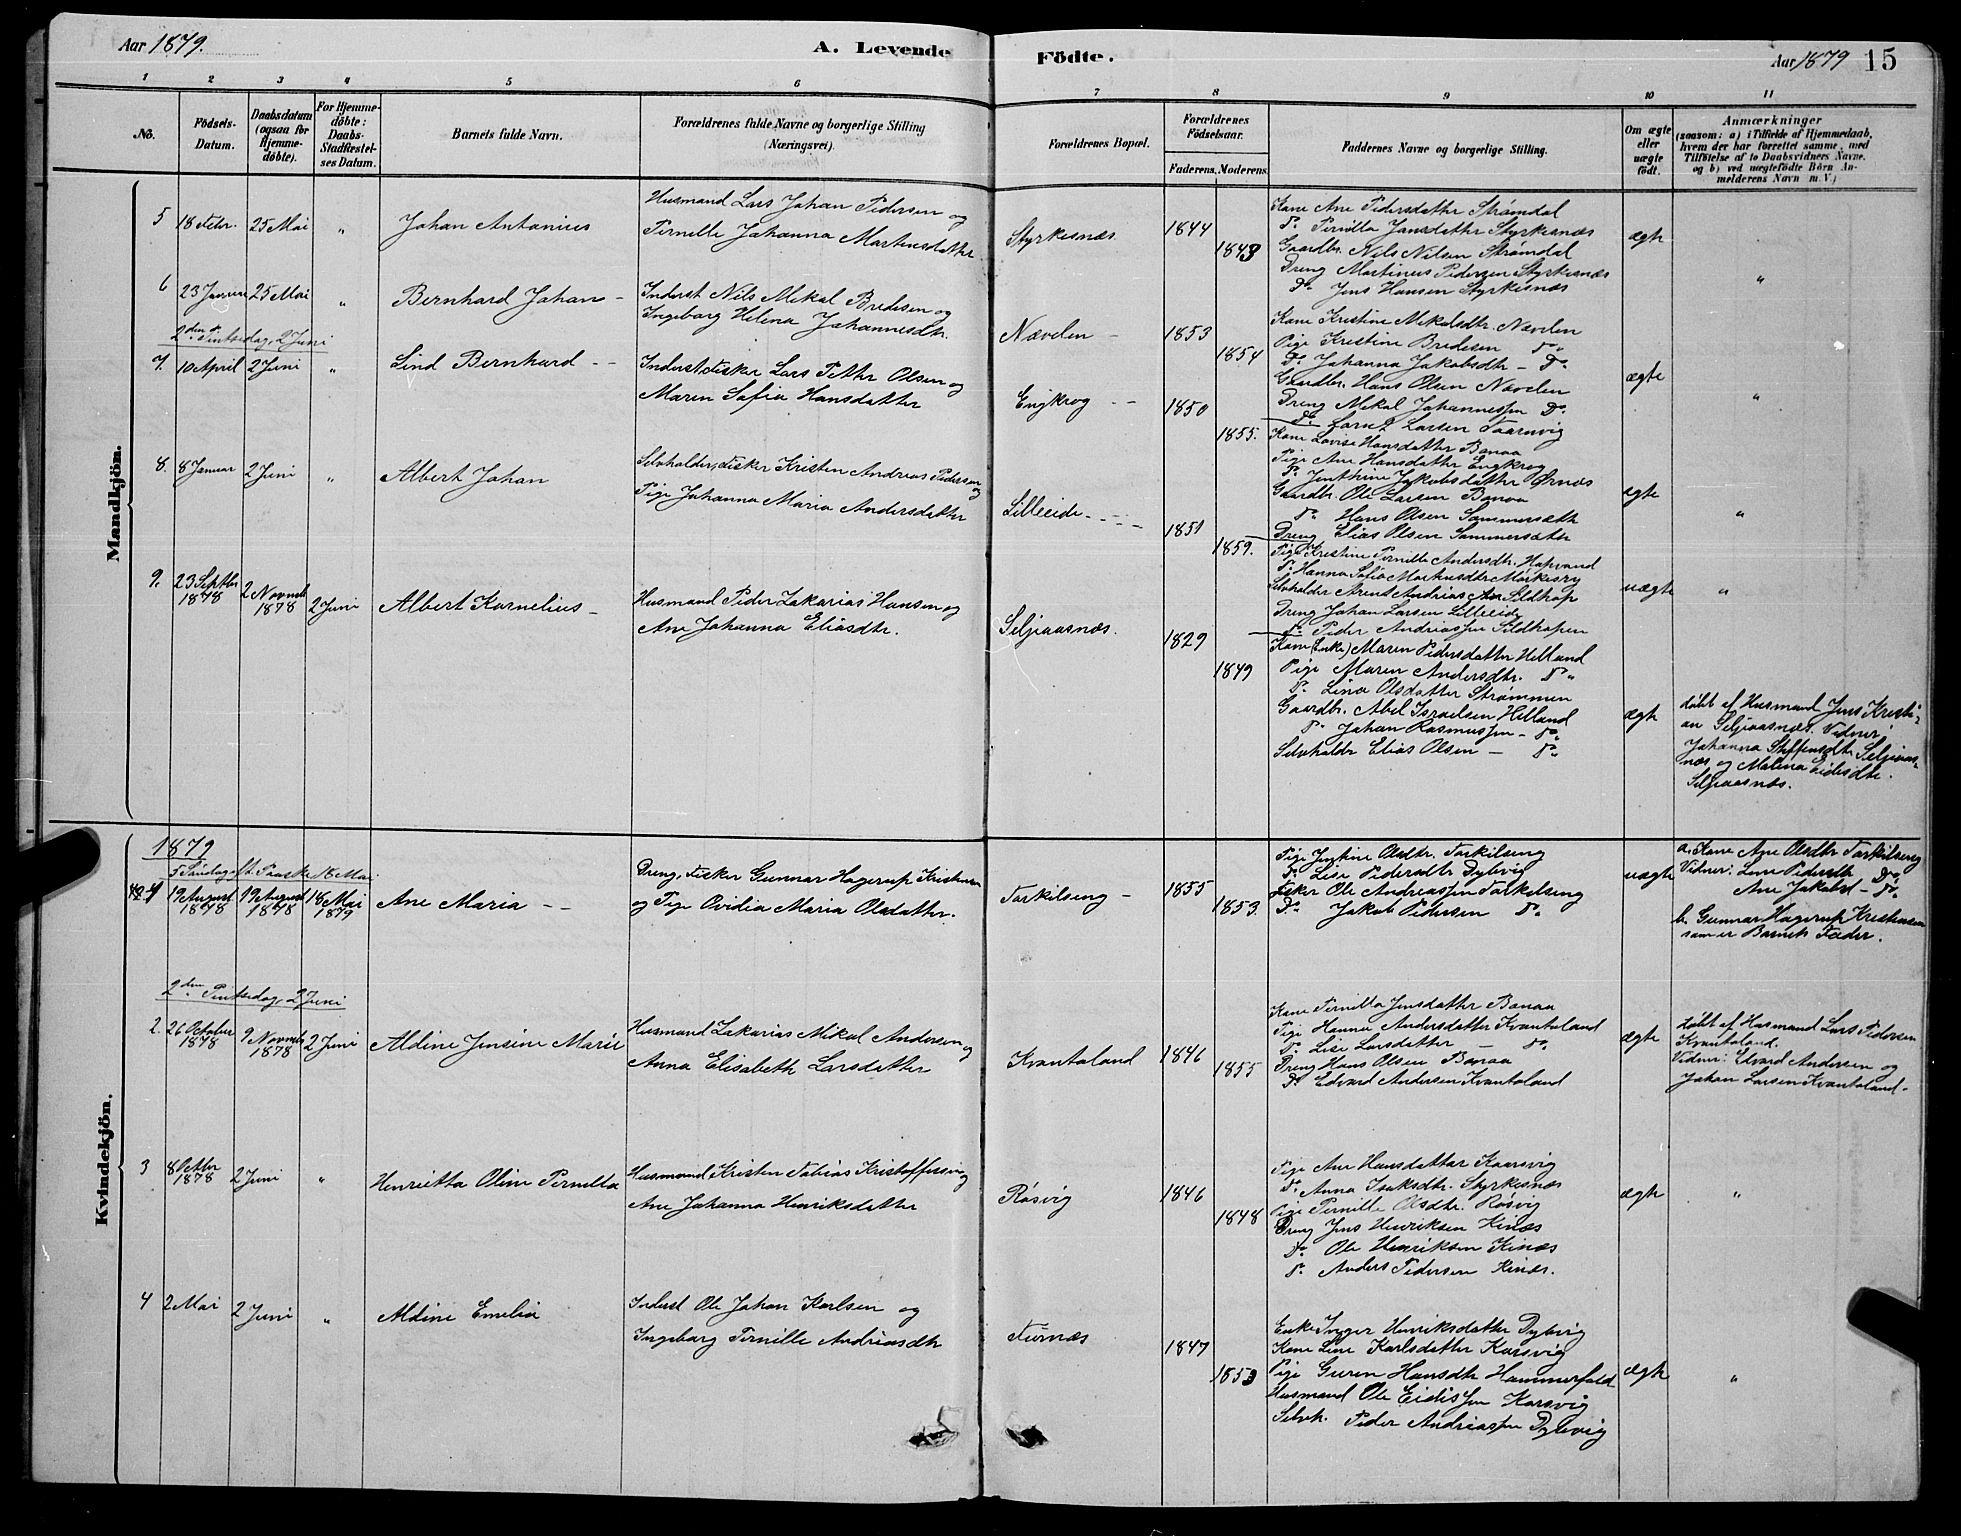 Aar 1879.
A. Levende
Födte.
Aar 1879 15
1 2 3 4 5 6 7 8 9 10 11
No.
Födsels-
Datum.
Daabsdatum
(ogsaa for
Hjemme-
döbte).
For Hjemme-
döbte:
Daabs-
Stadfæstel-
ses Datum.
Barnets fulde Navn.
Forældrenes fulde Navne og borgerlige Stilling
(Næringsvei).
Forældrenes Bopæl.
Forældrenes
Födselsaar.
Faderens. Moderens.
Faddernes Navne og borgerlige Stilling.
Om ægte
eller
uægte
født.
Anmærkninger
(saasom: a) i Tilfælde af Hjemmedaab,
hvem der har forrettet samme, med
Tilföielse af to Daabsvidners Navne.
og b) ved uægtefödte Börn An-
melderens Navn m. V.)
Mandkjön.
5 18 Febr. 25 Mai " Johan Antonius
Husmand Lars Johan Pedersen og
Pernille Johanna Martinsdatter
Styrkesnæs 1844
1843
Kone Ane Pedersdatter Strømdal
Do Pernilla Jensdatter Styrkesnæs
Gaardbr. Nils Nilsen Strømdal
Dreng Martinus Pedersen Styrkesnæs
Do Jens Hansen Styrkesnæs
ægte
"
6 23 Januar 25 Mai " Bernhard Johan -
Inderst Nils Mikal Bredesen og
Ingeborg Helena Johannesdtr.
Nævelen - 1853
1854
Kone Kristine Mikalsdtr. Nævelen
Pige Kristine Bredesen Do
Do Johanna Jakobsdtr - Do
Gaardbr. Hans Olsen Nævelen
Dreng Mikal Johannessen Do
Do Larsen Taarnvig
ægte
"
2den Pintsedag, 2 Juni
7. 10 April 2 Juni " Lind Bernhard - -
Inderst, Fisker Lars Petter Olsen og
Maren Sofia Hansdatter
Engkrog - - 1850
1855.
Kone Lovise Hansdatter Bonaa
Pige Ane Hansdatter Engkrog
Do Jenthine Jakobsdatter Ørnæs
Gaardbr. Ole Larsen Bonaa
Do Hans Olsen Sommersæth
Dreng Elias Olsen Sommersæter
ægte
"
8. 8 Januar 2 Juni " Albert Johan
Selvholder, Fisker Kristen Andreas Pedersen og
Pige Johanna Maria Andersdatter
Lilleeide - - - - 1851
1859.
Pige Kristine Pernille Andersdtr. Hopvand
Do Hanna Sofia Markusdtr Mørkesry
Selvholder Arent Andrias Sildhop
Dreng Johan Larsen Lilleeide
Do Peder Andriassen Sildhopen
uægte "
9. 23 Septbr 1878 2 Novmb 1878 2 Juni Albert Kornelius -
Husmand Peder Zakarias Hansen og
Ane Johanna Eliasdtr.
Seljeaasnæs. 1829
1849
Kone (Enke) Maren Pedersdatter Helland
Pige Maren Andersdtr. Do
Do Lina Olsdatter Strømmen
Gaardbr. Abel Israelsen Helland
Do Johan Rasmussen - Do
Selvholder Elias Olsen - Do
ægte
døbt af Husmand Jens Kristi-
an Seljeaasnæs. Vidner:
Johanna Steffensdtr Seljeaas-
næs og Malena Eidesdtr.
Seljeaasnæs.
Kvindekjön.
1879
5 Søndag eft. Paaske 18 Mai
1 19 August 1878 19 August 1878 18 Mai 1879 Ane Maria - -
Dreng, Fisker Gunnar Hagerup Kristensen
og Pige Ovidia Maria Olsdatter.
Torkilseng - 1855
1853.
Pige Justine Olsdtr. Torkilseng
Do Lise Pedersdtr Dybvig
Fisker Ole Andreassen Torkilseng
Do Jakob Pedersen Do
uægte
a. Kone Ane Olsdtr Torkilseng
Vidner: Lene Pedersdtr Do
Ane Jakobsd - Do
b. Gunnar Hagerup Kristensen
som er Barnets Fader.
2den Pintsedag, 2 Juni
2. 26 October 1878 9 Novmb 1878 2 Juni Aldine Jensine Marie
Husmand Zakarias Mikal Andersen og
Anna Elisabeth Larsdatter
Kvantoland 1846
1855
Kone Pernilla Jensdatter Bonaa
Pige Hanna Andersdatter Kvantoland
Do Lise Larsdatter - Do
Dreng Hans Olsen Bonaa
Do Edvard Andersen Kvantoland
ægte
døbt af Husmand Lars Pedersen
Kvantoland.
Vidner: Edvard Andersen og
Johan Larsen Kvantoland -
3 8 Octbr 1878 2 Juni " Henrietta Oline Pernilla
Husmand Kristen Tobias Kristoffersen og
Ane Johanna Henriksdatter
Røsvig 1846
1848
Pige Ane Hansdatter Kaarsvig
Do Anna Isaksdtr. Styrkesnæs
Pige Pernille Olsdtr. Røsvig
Dreng Jens Henriksen Kinæs
Do Ole Henriksen Kinæs
Do Anders Pedersen Kinæs.
ægte "
4 2 Mai 2 Juni " Aldine Emelia
Inderst Ole Johan Karlsen og
Ingeborg Pernille Andriasdtr
Furnæs 1847
1853
Enke Inger Henriksdatter Dybvig
Kone Line Karlsdatter Korsvig
Pige Guren Hansdtr Hammerfald
Husmand Ole Eidissen Korsvig
Selvh. Peder Andriassen Dybvig
ægte "